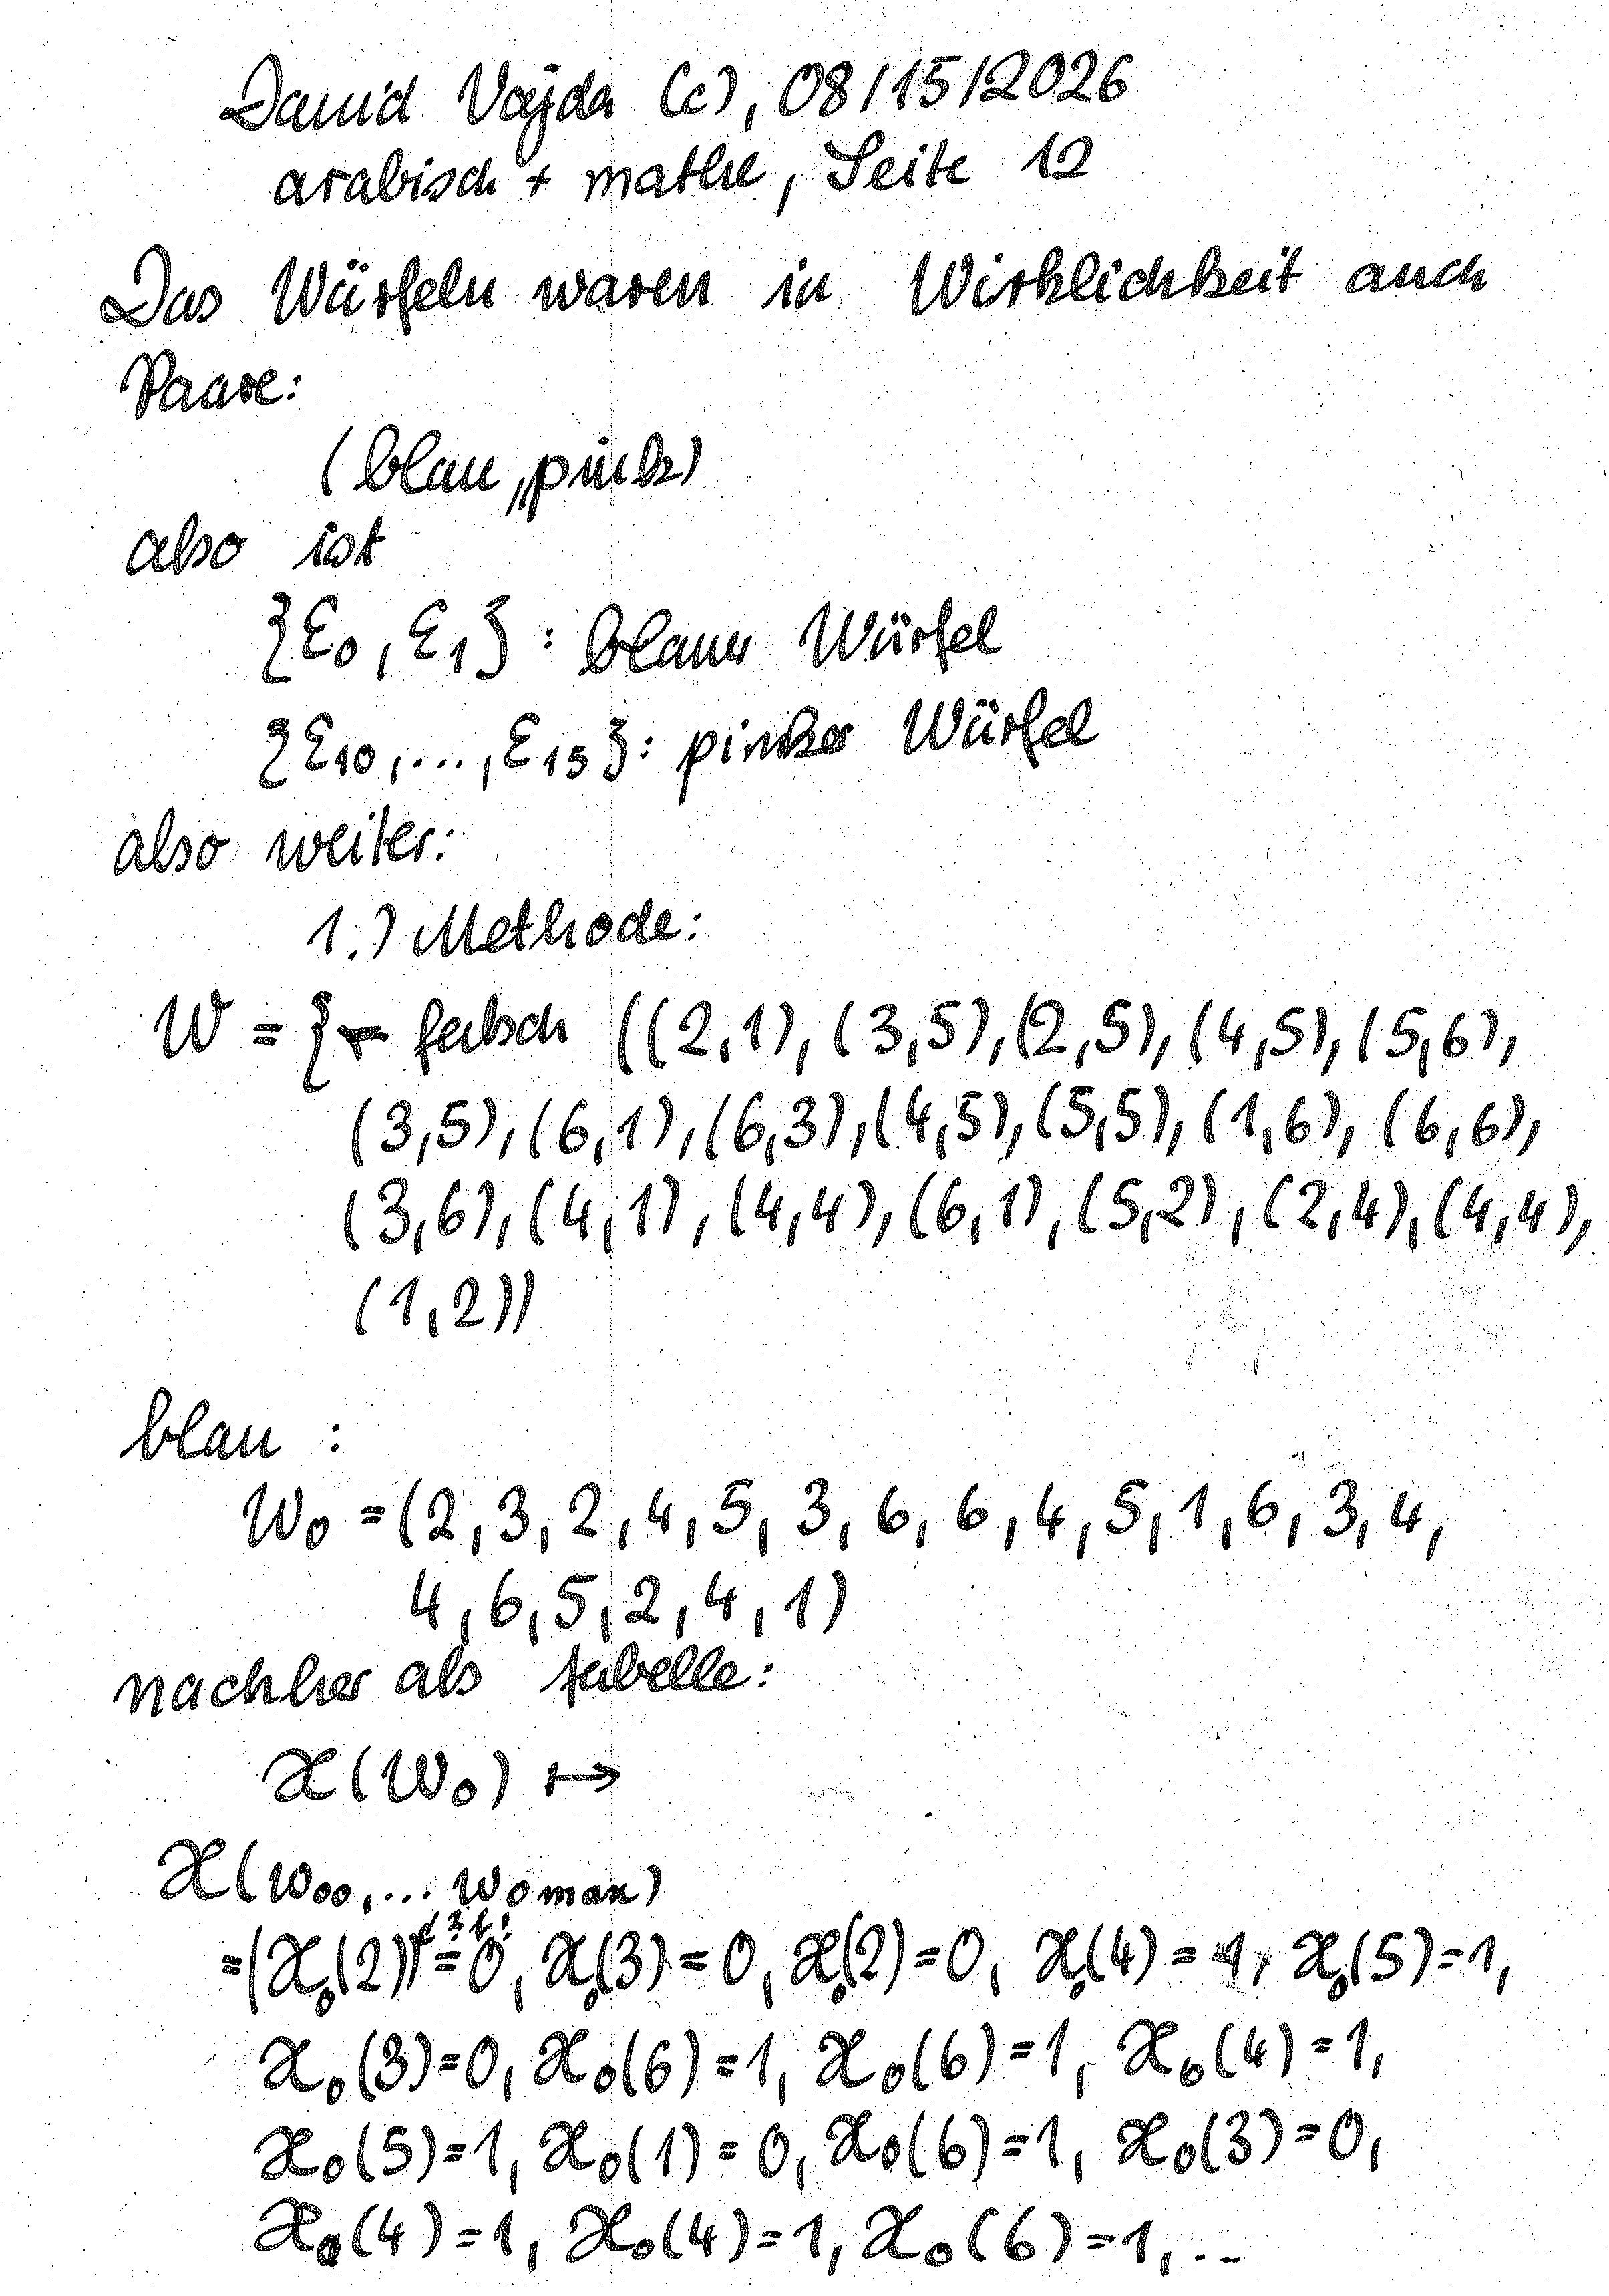 David Vajda (c), 08/15/2026
arabisch + mathe, Seite 12
Das Würfeln waren in Wirklichkeit auch
Paare:
(blau, pink)
also ist
{ε0, ε1} : blauer Würfel
{ε10, ..., ε15} : pinker Würfel
also weiter:
1.) Methode:
W = { falsch ((2,1), (3,5), (2,5), (4,5), (5,6),
(3,5), (6,1), (6,3), (4,5), (5,5), (1,6), (6,6),
(3,6), (4,1), (4,4), (6,1), (5,2), (2,4), (4,4),
(1,2))
blau :
W0 = (2, 3, 2, 4, 5, 3, 6, 6, 4, 5, 1, 6, 3, 4,
4, 6, 5, 2, 4, 1)
nachher als tabelle:
X(W0) ↦
X(W00, ... W0max)
=(X0(2) = 0, X0(3) = 0, X0(2) = 0, X0(4) = 1, X0(5)=1,
X0(3)=0, X0(6)=1, X0(6)=1, X0(4)=1,
X0(5)=1, X0(1)=0, X0(6)=1, X0(3)=0,
X0(4)=1, X0(4)=1, X0(6)=1, ...